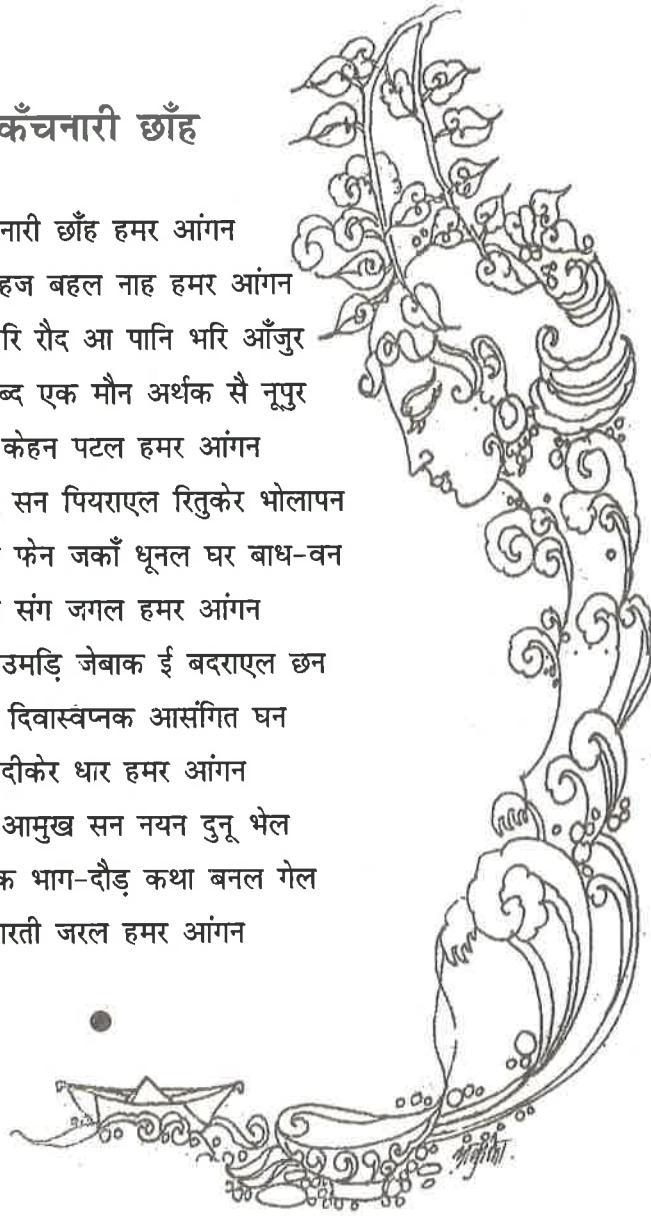 कँचनारी छाँह
नारी छाँह हमर आंगन
हज बहल नाह हमर आंगन
रि रौद आ पानि भरि आँजुर
ब्द एक मौन अर्थक सै नूपुर
केहन पटल हमर आंगन
सन पियराएल रितुकेर भोलापन
फेन जकाँ धूनल घर बाध-वन
संग जगल हमर आंगन
उमड़ि जेबाक ई बदराएल छन
दिवास्वप्नक आसंगित घन
दीकेर धार हमर आंगन
आमुख सन नयन दुनू भेल
क भाग-दौड़ कथा बनल गेल
रती जरल हमर आंगन